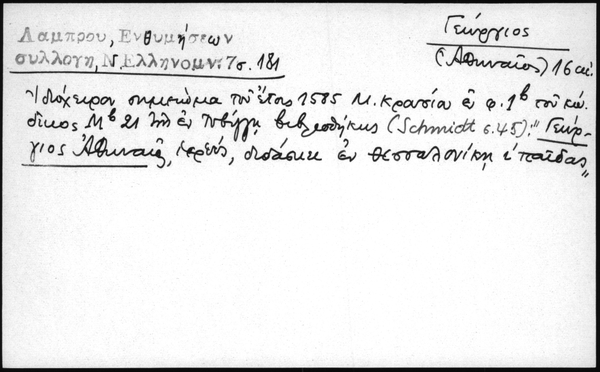 Λαμπρου, Ενθυμήσεων
συλλογη, Ν. Ελληνομν. 7 σ. 181
Γεώργιος
(Ἀθηναῖος) 16 αἰ.
Ἰδιόχειρον σημείωμα τοῦ ἔτους 1585 Μ. Κρουσίου ἐν φ. 1b τοῦ κώ-
δικος Mb 21 τῆς ἐν Τυβίγγῃ βιβλιοθήκης (Schmidt σ. 45): "Γεώρ-
γιος Ἀθηναῖος, ἱερεύς, διδάσκει ἐν Θεσσαλονίκῃ παῖδας"